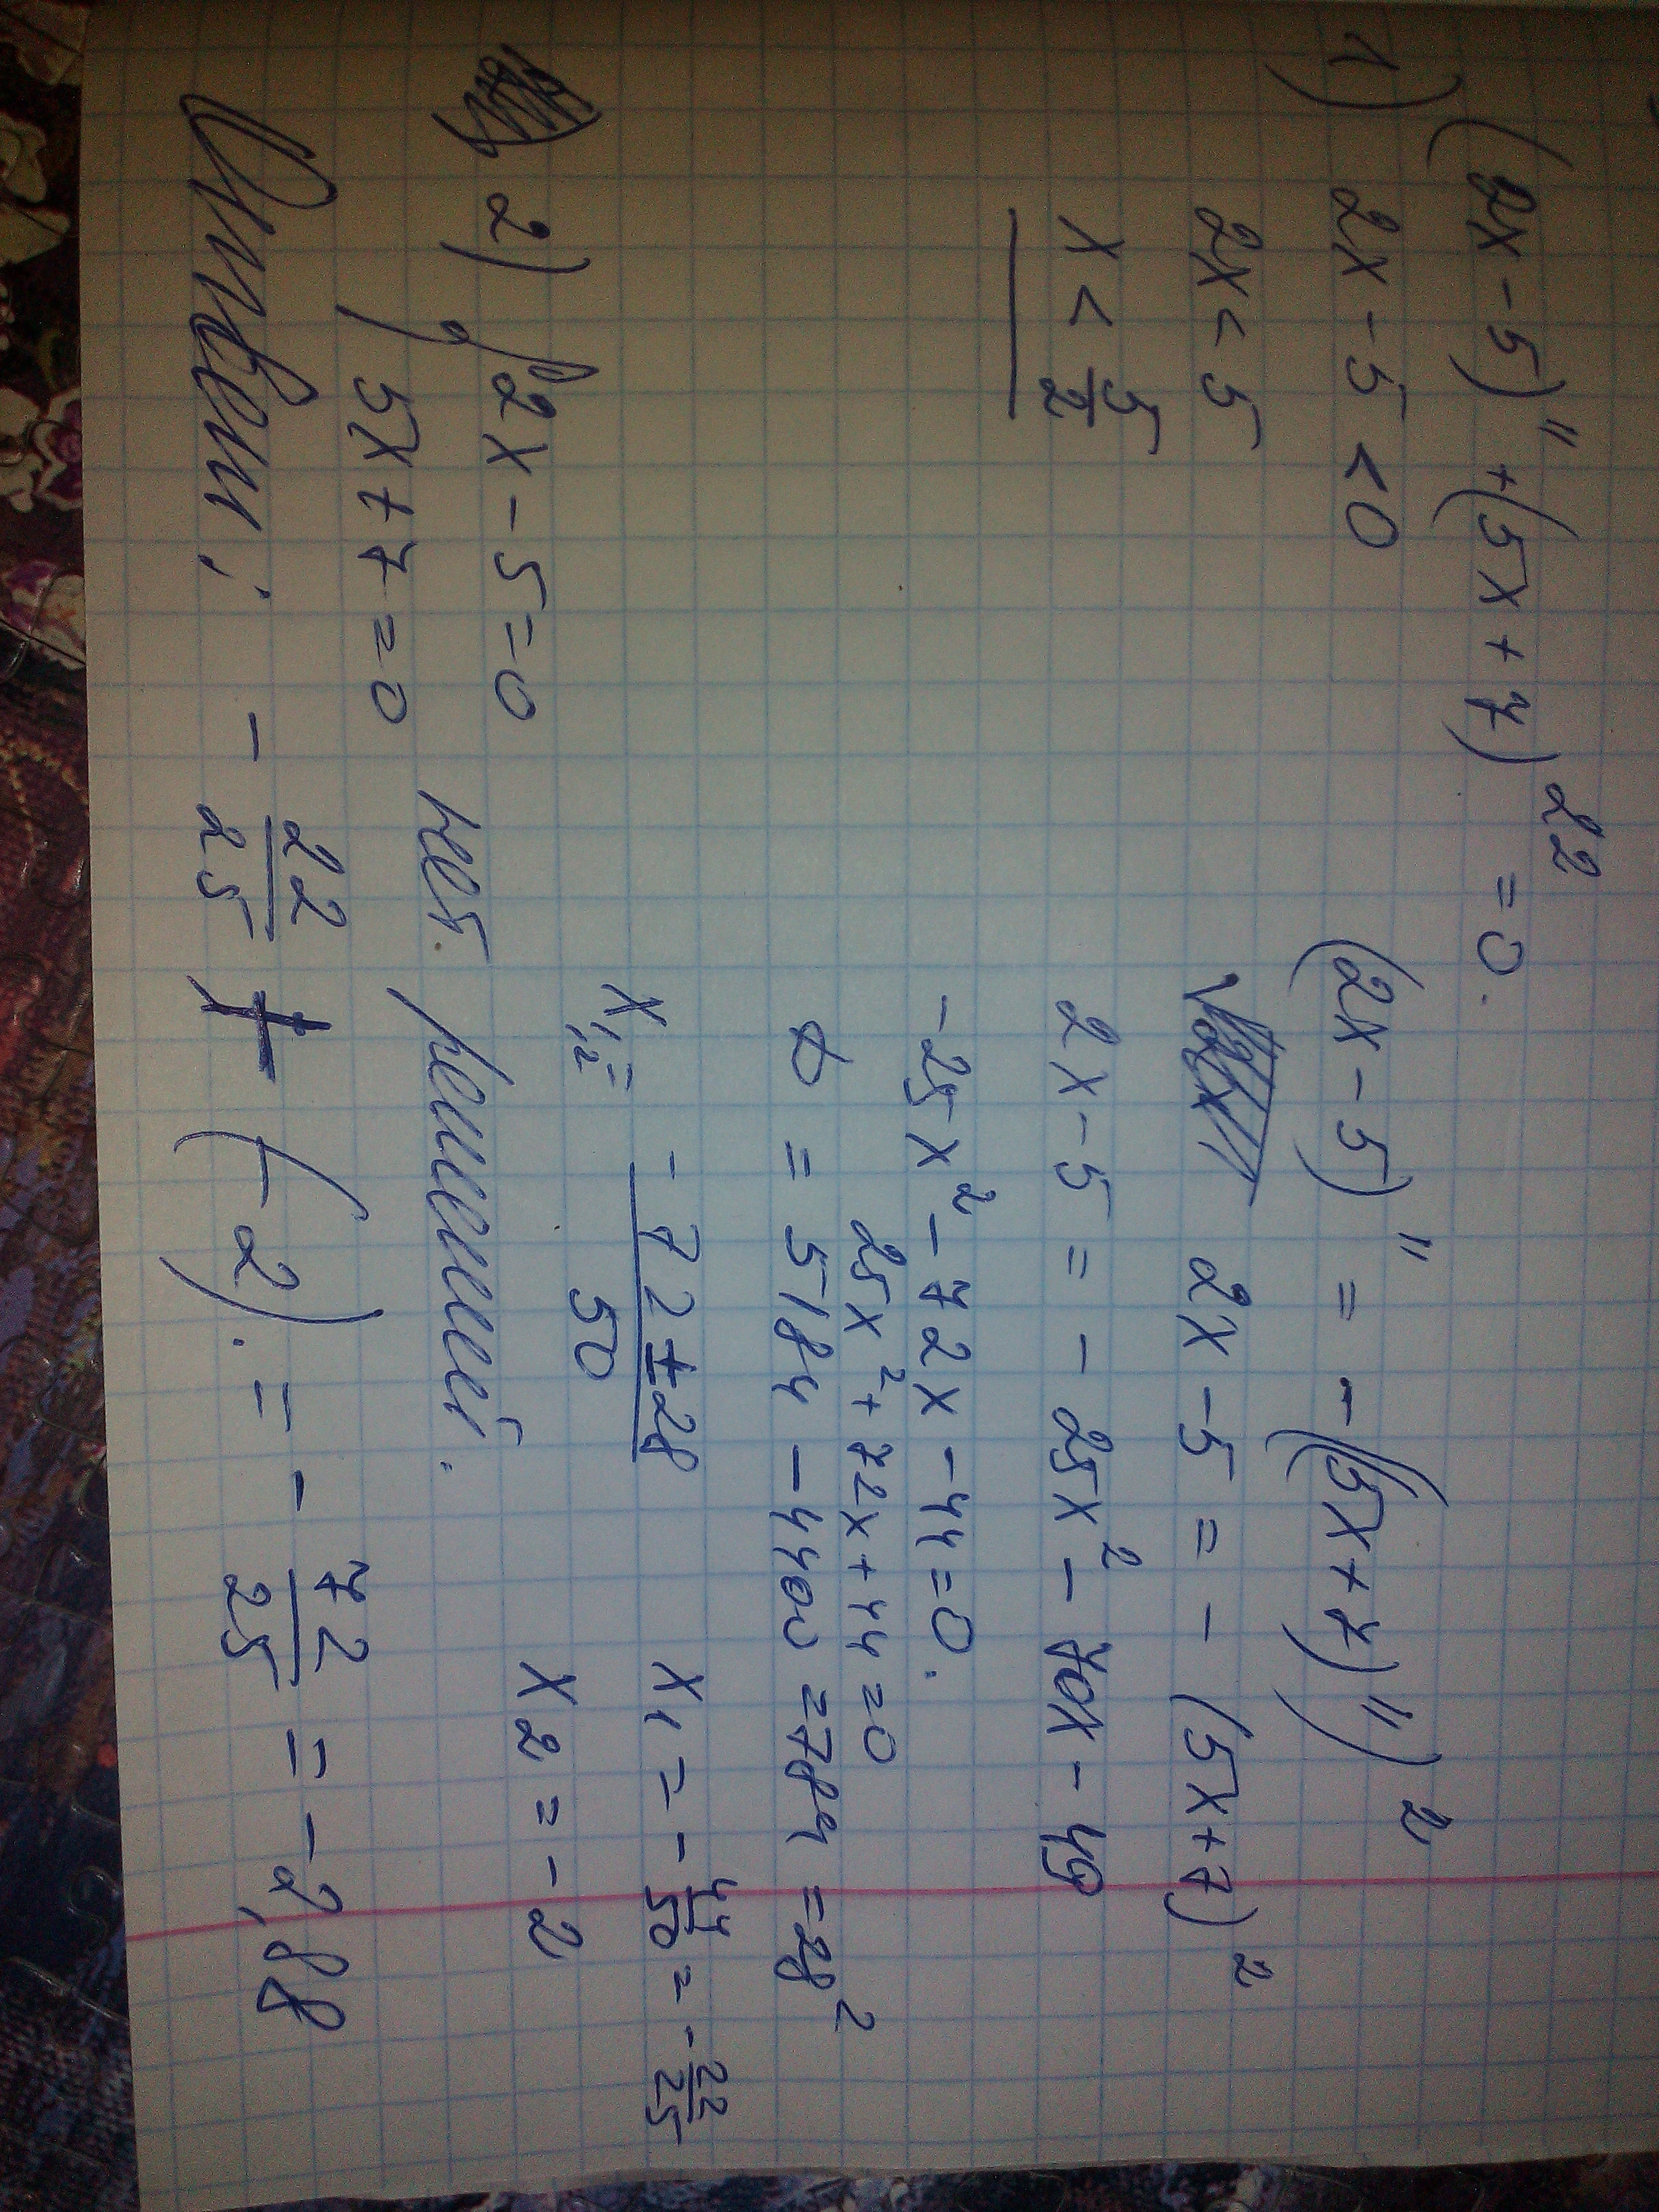 (2x-5)¹¹ + (5x+7)²² = 0.
1) 2x-5<0
2x<5
x < 5/2
(2x-5)¹¹ = -((5x+7)¹¹)²
2x-5 = -(5x+7)²
2x-5 = -25x²-70x-49
-25x²-72x-44=0.
25x²+72x+44=0
D = 5184-4400=784=28²
x₁,₂= (-72±28)/50
x₁ = -44/50 = -22/25
x₂ = -2
2) { 2x-5=0
5x+7=0
нет. решений.
Ответ: -22/25 + (-2). = -72/25 = -2,88